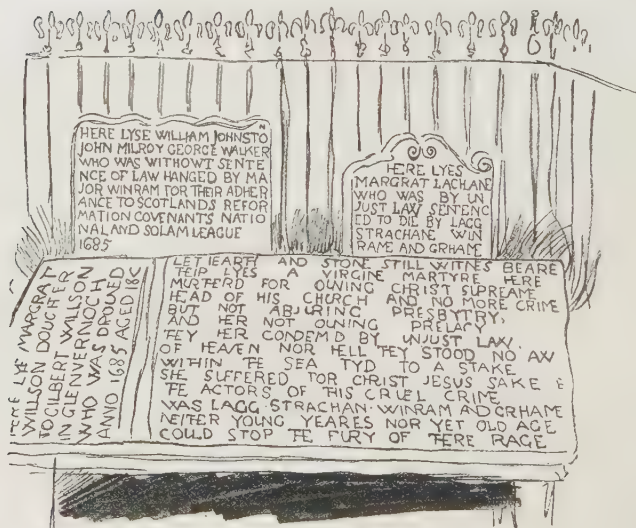 HERE LYSE WILLIAM JOHNSTO
N
JOHN MILROY GEORGE WALKER
WHO WAS WITHOWT SENTE
NCE OF LAW HANGED BY MA
JOR WINRAM FOR THEIR ADHER
ANCE TO SCOTLANDS REFOR
MATION COVENANTS NATIO
NAL AND SOLAM LEAGUE
1685
HERE LYES
MARGRAT LACHLANE
WHO WAS BY UN
JUST LAW SENTENC
ED TO DIE BY LAGG
STRACHANE WIN
RAME AND GRHAME
HERE LYE MARGRAT
WILLSON DOUGHTER
TO GILBERT WILLSON
IN GLENVERNOCH
WHO WAS DROUNED
ANNO 1685 AGED 18
LET EARTH AND STONE STILL WITNES BEARE
THEIR LYES A VIRGINE MARTYRE HERE
MURTERD FOR OWING CHRIST SUPREAME
HEAD OF HIS CHURCH AND NO MORE CRIME
BUT NOT ABJURING PRESBYTRY,
AND HER NOT OWNING PRELACY
THEY HER CONDEMD BY UNJUST LAW.
OF HEAVEN NOR HELL THEY STOOD NO AW
WITHIN THE SEA TYD TO A STAKE
SHE SUFFERED FOR CHRIST JESUS SAKE
THE ACTORS OF THIS CRUEL CRIME
WAS LAGG. STRACHAN. WINRAM AND GRHAME
NEITHER YOUNG YEARES NOR YET OLD AGE
COULD STOP THE FURY OF THERE RAGE